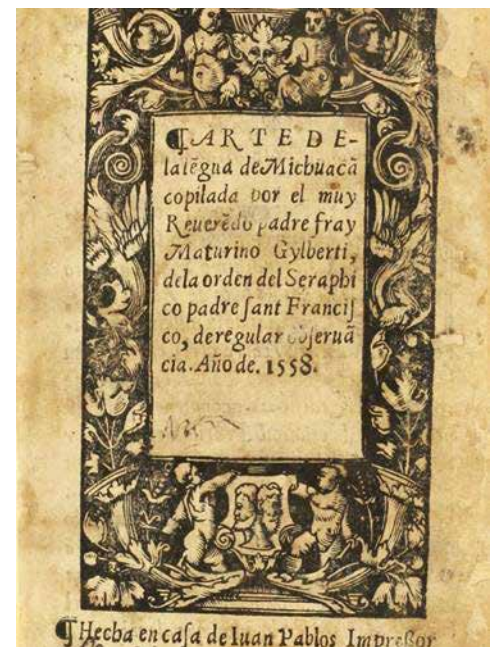 ¶ARTE DE-
la lẽgua de Michuacã
copilada por el muy
Reuerẽdo padre fray
Maturino Gylberti,
dela orden del Seraphi
co padre ſant Franciſ
co, de regular obſeruã
cia. Año de. 1558.
¶Hecha en caſa de Iuan Pablos Impreſſor